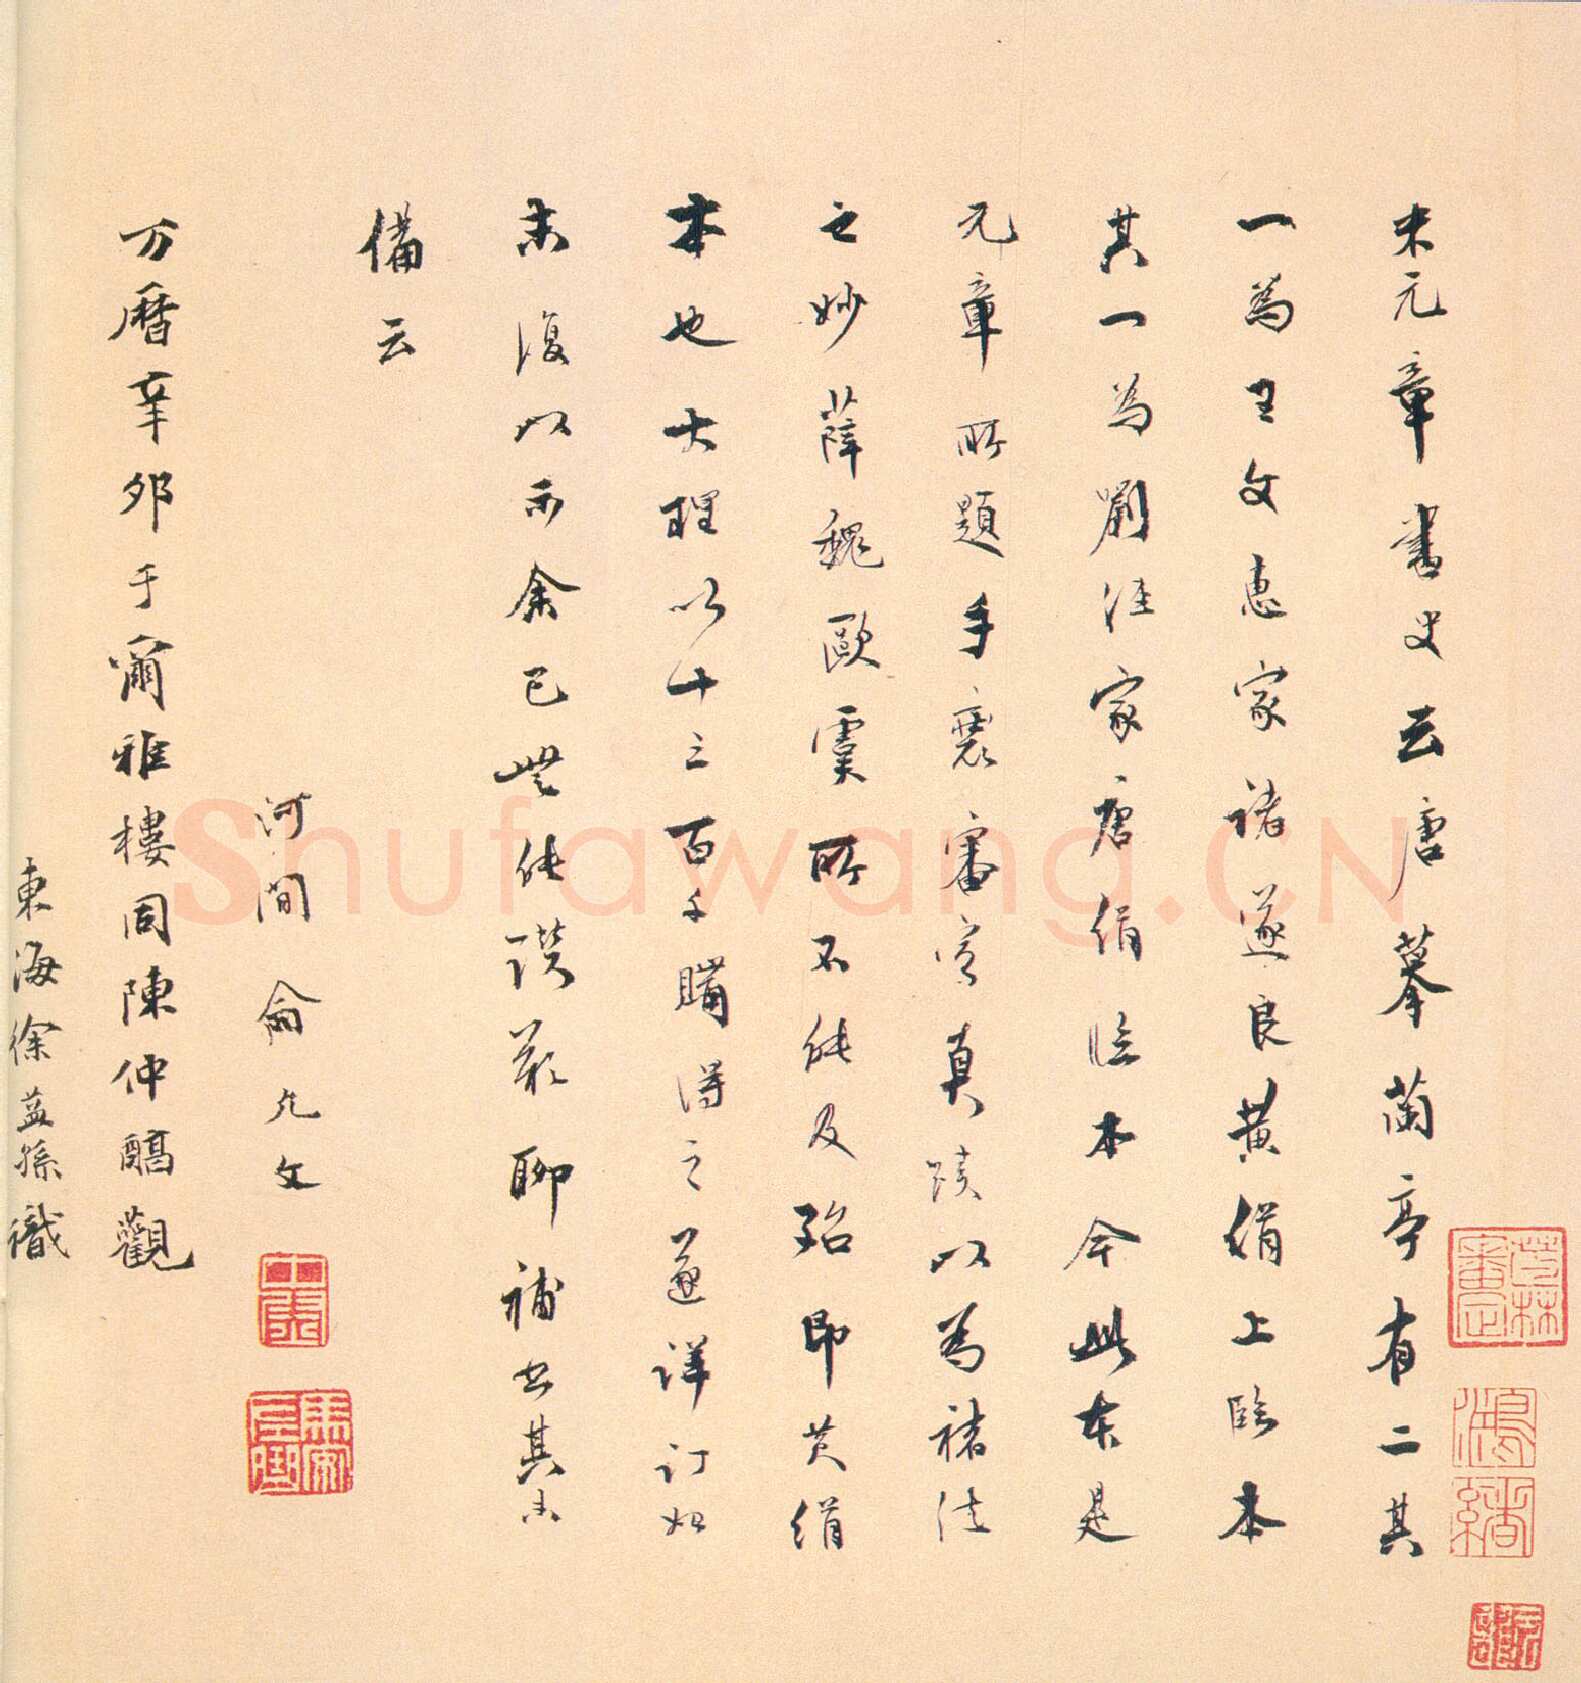 米元章書史云唐摹蘭亭有二其
一為王文惠家諸遂良黃絹上臨本
其一為劉涇家唐絹臨本今此本是
元章所題手裹審定真蹟以為褚法
之妙薛魏歐虞所不能及殆即黃絹
本也大理以廿三百千購得之并詳訂如
未復以示余已無能讚羨聊補書其未
備云
河間俞允文
万曆辛卯于爾雅樓同陳仲醇觀
東海徐益孫識
Shufawang.CN